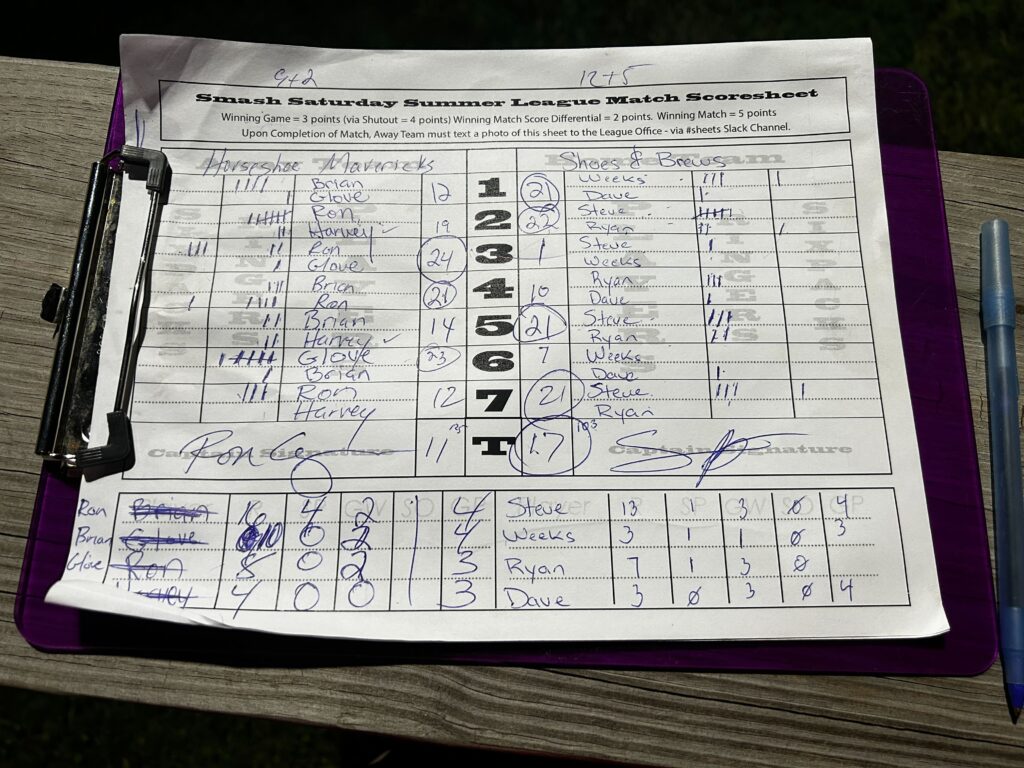 9+2 12+5
Smash Saturday Summer League Match Scoresheet
Winning Game = 3 points (via Shutout = 4 points) Winning Match Score Differential = 2 points. Winning Match = 5 points
Upon Completion of Match, Away Team must text a photo of this sheet to the League Office - via #sheets Slack Channel.
Horseshoe Mavericks Shoes & Brews
Brian 12 1 21 Weeks
Glove Dave
Ron 19 2 22 Steve
Harvey Ryan
Ron 24 3 1 Steve
Glove Weeks
Brian 21 4 10 Ryan
Ron Dave
Brian 14 5 21 Steve
Harvey Ryan
Glove 23 6 7 Weeks
Brian Dave
Ron 12 7 21 Steve
Harvey Ryan
Captain Signature 11 T 17 103 Captain Signature
Ron 4 2 4 Steve 13 1 3 0 4
Brian 10 0 2 4 Weeks 3 1 1 0 3
Glove Ron 8 0 2 3 Ryan 7 1 3 0
4 0 0 3 Dave 3 0 3 0 4